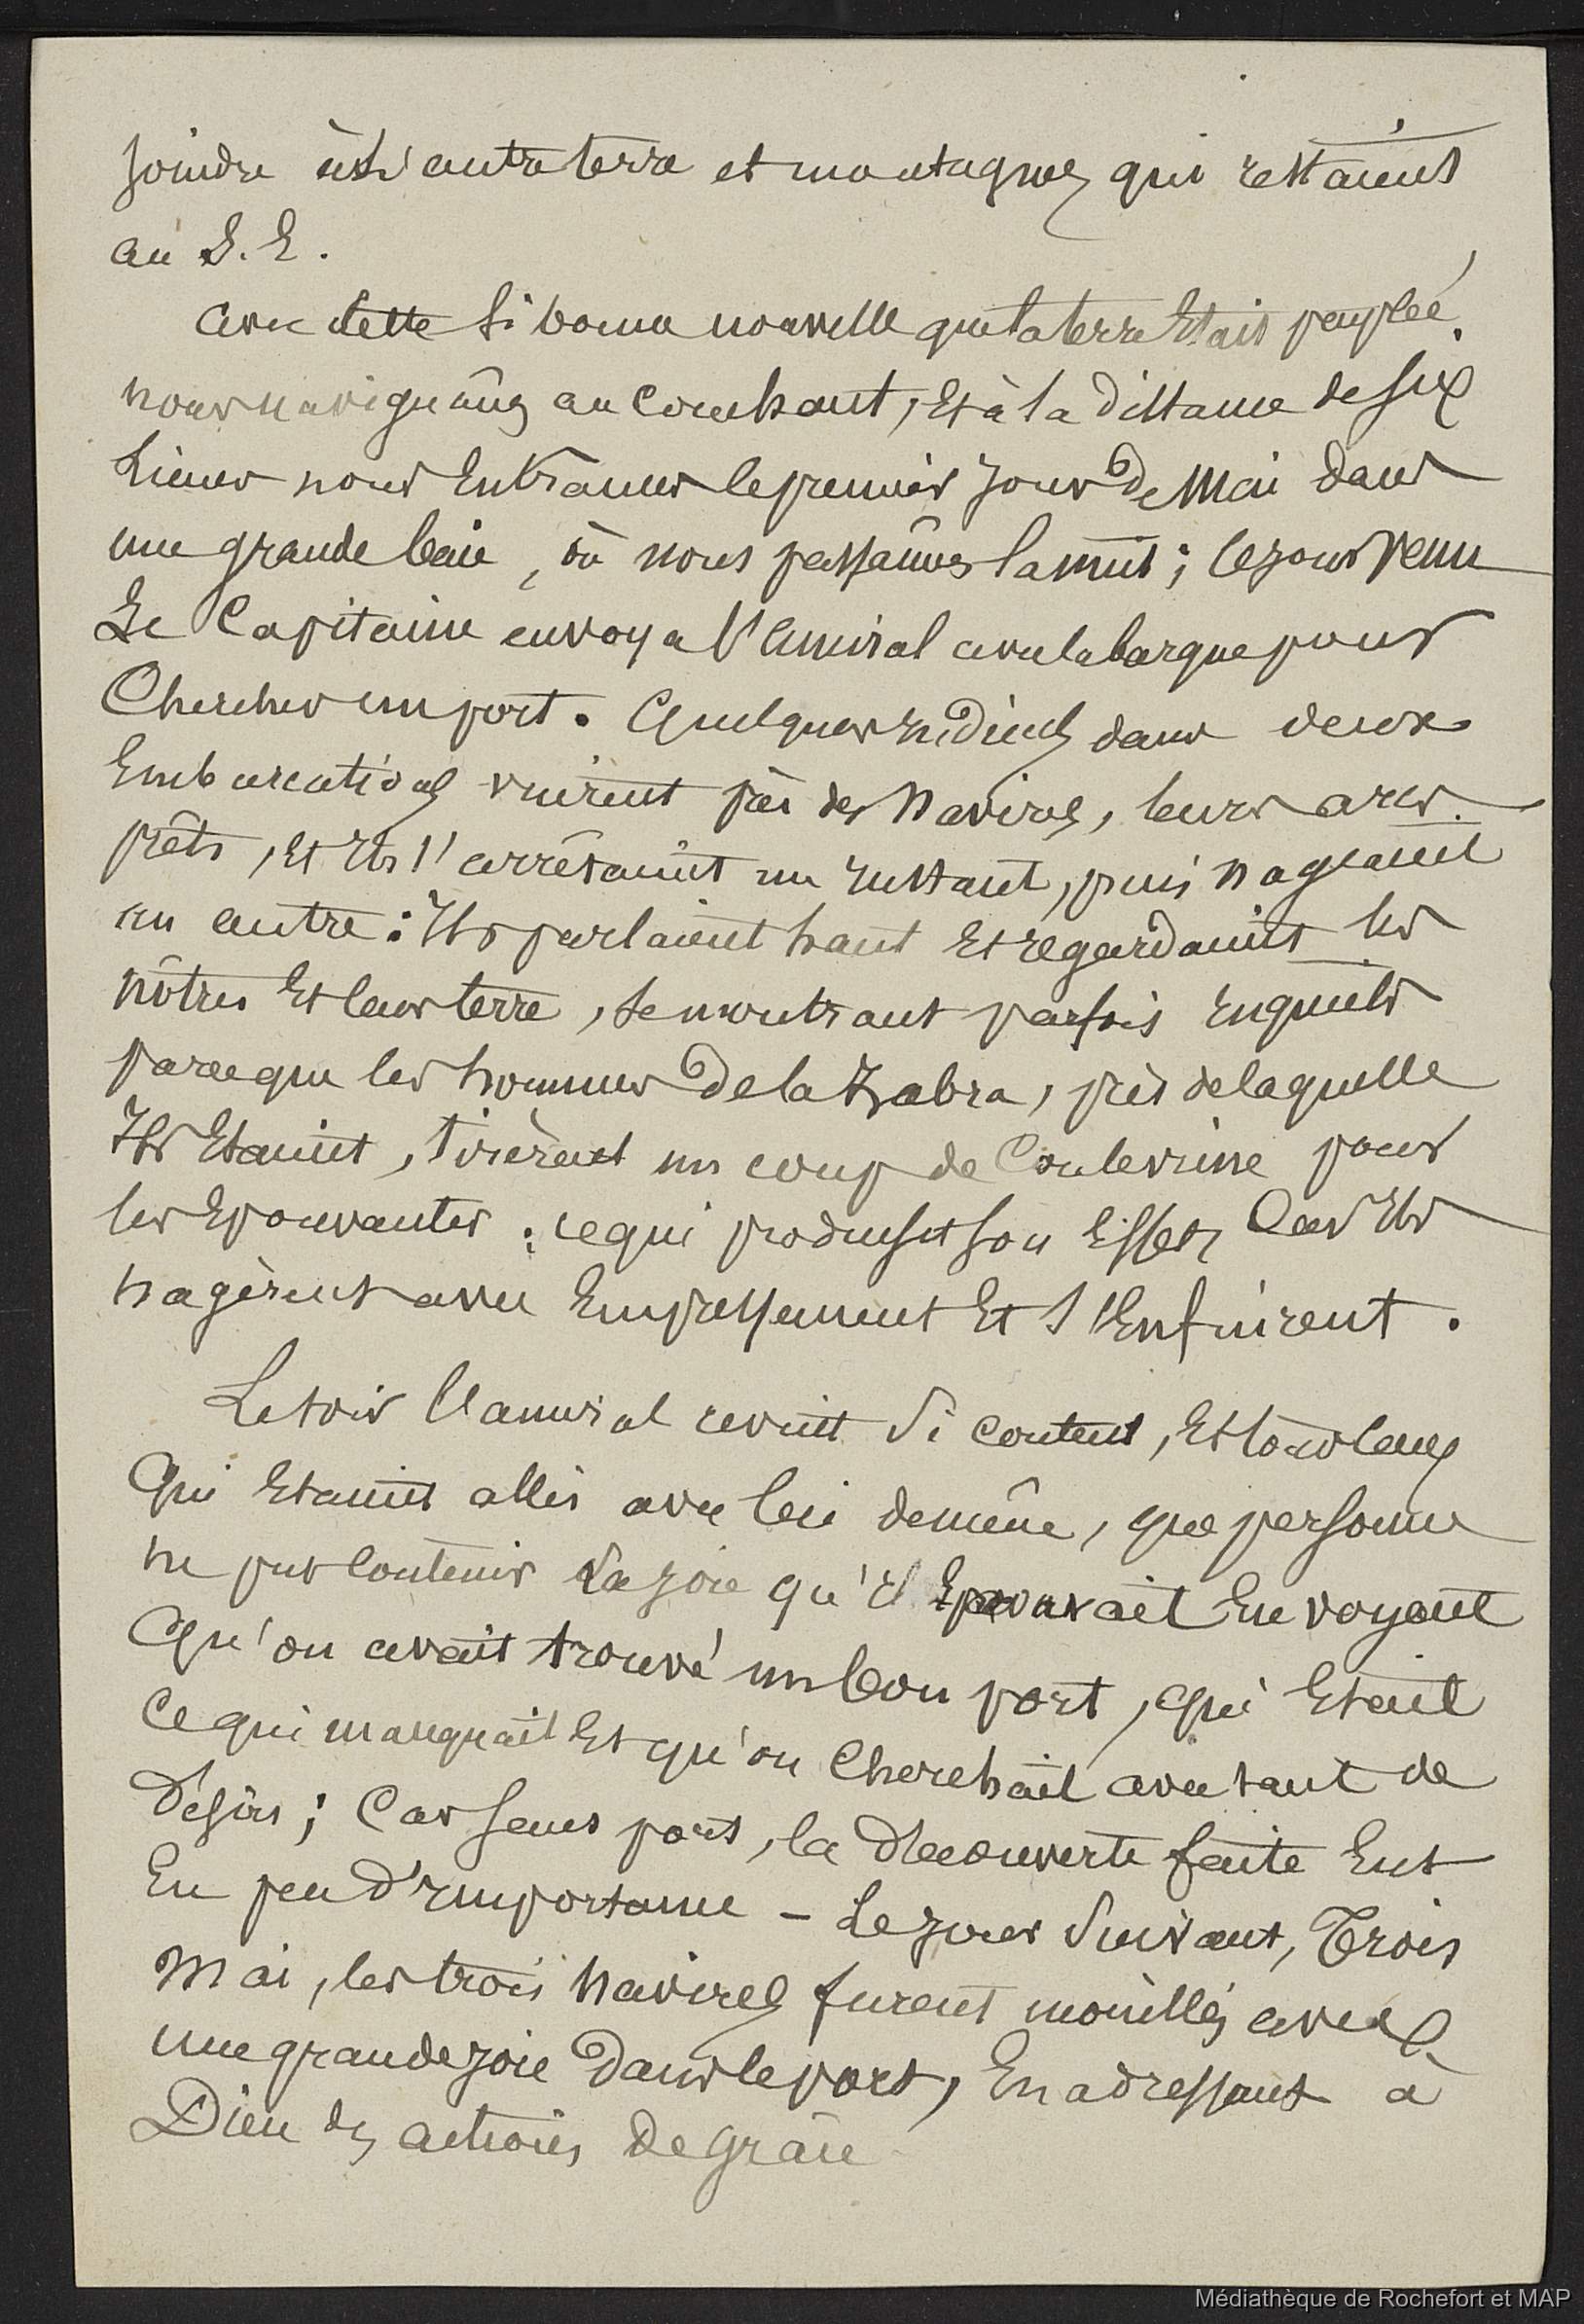 joindre à l'autre terre et montagnes qui restaient
au S. E.
avec cette si bonne nouvelle que la terre Etait peuplée,
nous naviguâmes au Couchant, Et à la distance de six
Lieues nous Entrâmes le premier jour de Mai dans
une grande baie, où nous passâmes la nuit ; le jour venu
Le Capitaine envoya l'amiral avec la barque pour
Chercher un port. Quelques Indiens dans deux
Embarcations vinrent près des Navires, leurs arcs
prêts, Et Ils s'arrêtaient un Instant, puis nageaient
un autre : Ils parlaient haut Et regardaient les
nôtres Et leur terre, se montrant parfois Inquiets
parce que les hommes de la Zabra, près de laquelle
Ils Etaient, tirèrent un coup de Couleuvrine pour
les Epouvanter : ce qui produisit son Effet, Car Ils
nagèrent avec Empressement Et s'Enfuirent.
Le soir l'amiral revint si content, Et tous ceux
Qui Etaient allés avec lui de même, que personne
ne put Contenir la joie qu'il Eprouvait En voyant
Qu'on avait trouvé un bon port, qui Etait
Ce qui manquait Et qu'on Cherchait avec tant de
Désirs ; Car sans port, la Découverte faite Eut
Eu peu d'Importance - Le jour Suivant, Trois
Mai, les trois Navires furent mouillés avec
une grande joie Dans le port, En adressant à
Dieu des actions De grâce
Médiathèque de Rochefort et MAP